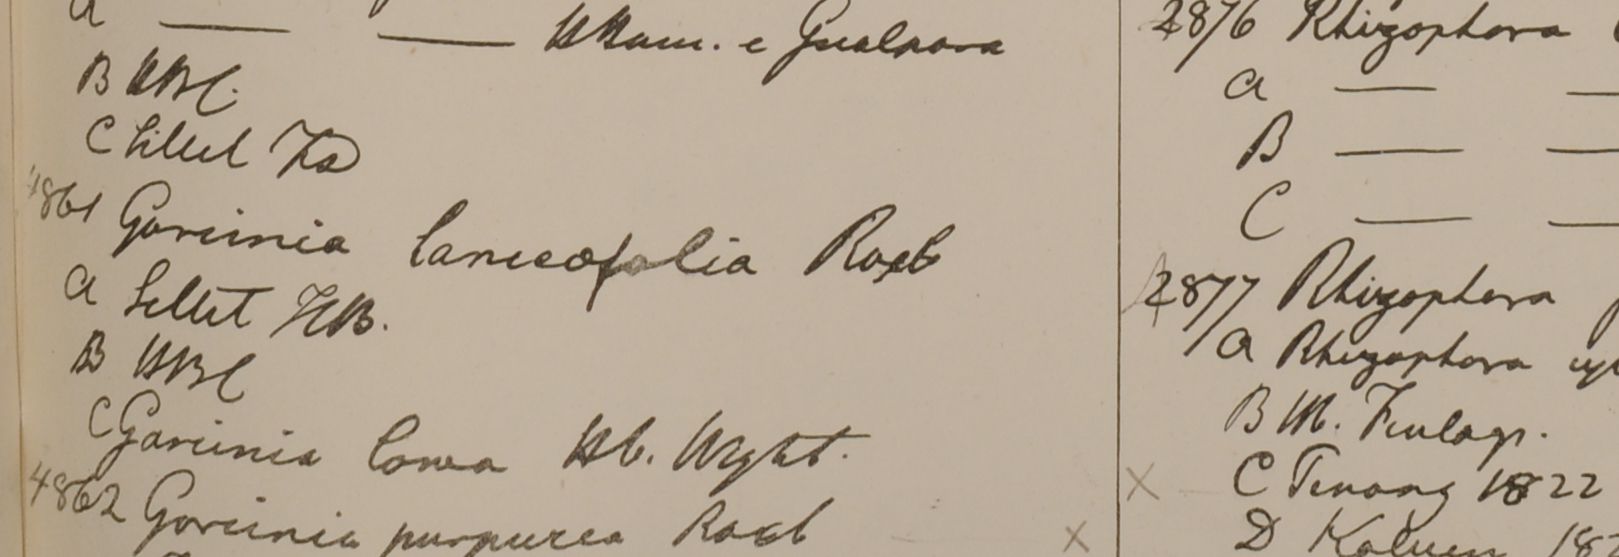 a — — HHam. e Gualpara
B HBC.
C Sillet FD
4861 Garcinia lanceofolia Roxb
a Sillet HB.
B HBC
C Garcinia Cowa Hb. Wight.
4862 Garcinia purpurea Roxb
4876 Rhizophora
a — —
B — —
C — —
4877 Rhizophora
a Rhizophora
B Hb. Finlays.
C Penang 1822
D